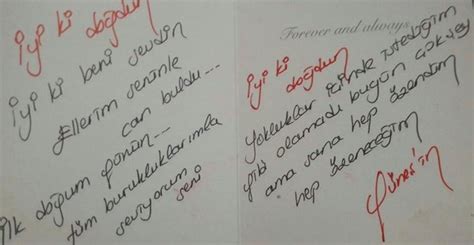 iyi ki doğdun
iyi ki beni sevdin
Ellerim seninle
can buldu...
ilk doğum günün...
tüm burukluklarımla
seviyorum seni
Forever and always
iyi ki doğdun
Yokluklar içinde istediğim
gibi olamadı bugün çok şey
ama sana hep özendim
hep özeneceğim
Güneş'in